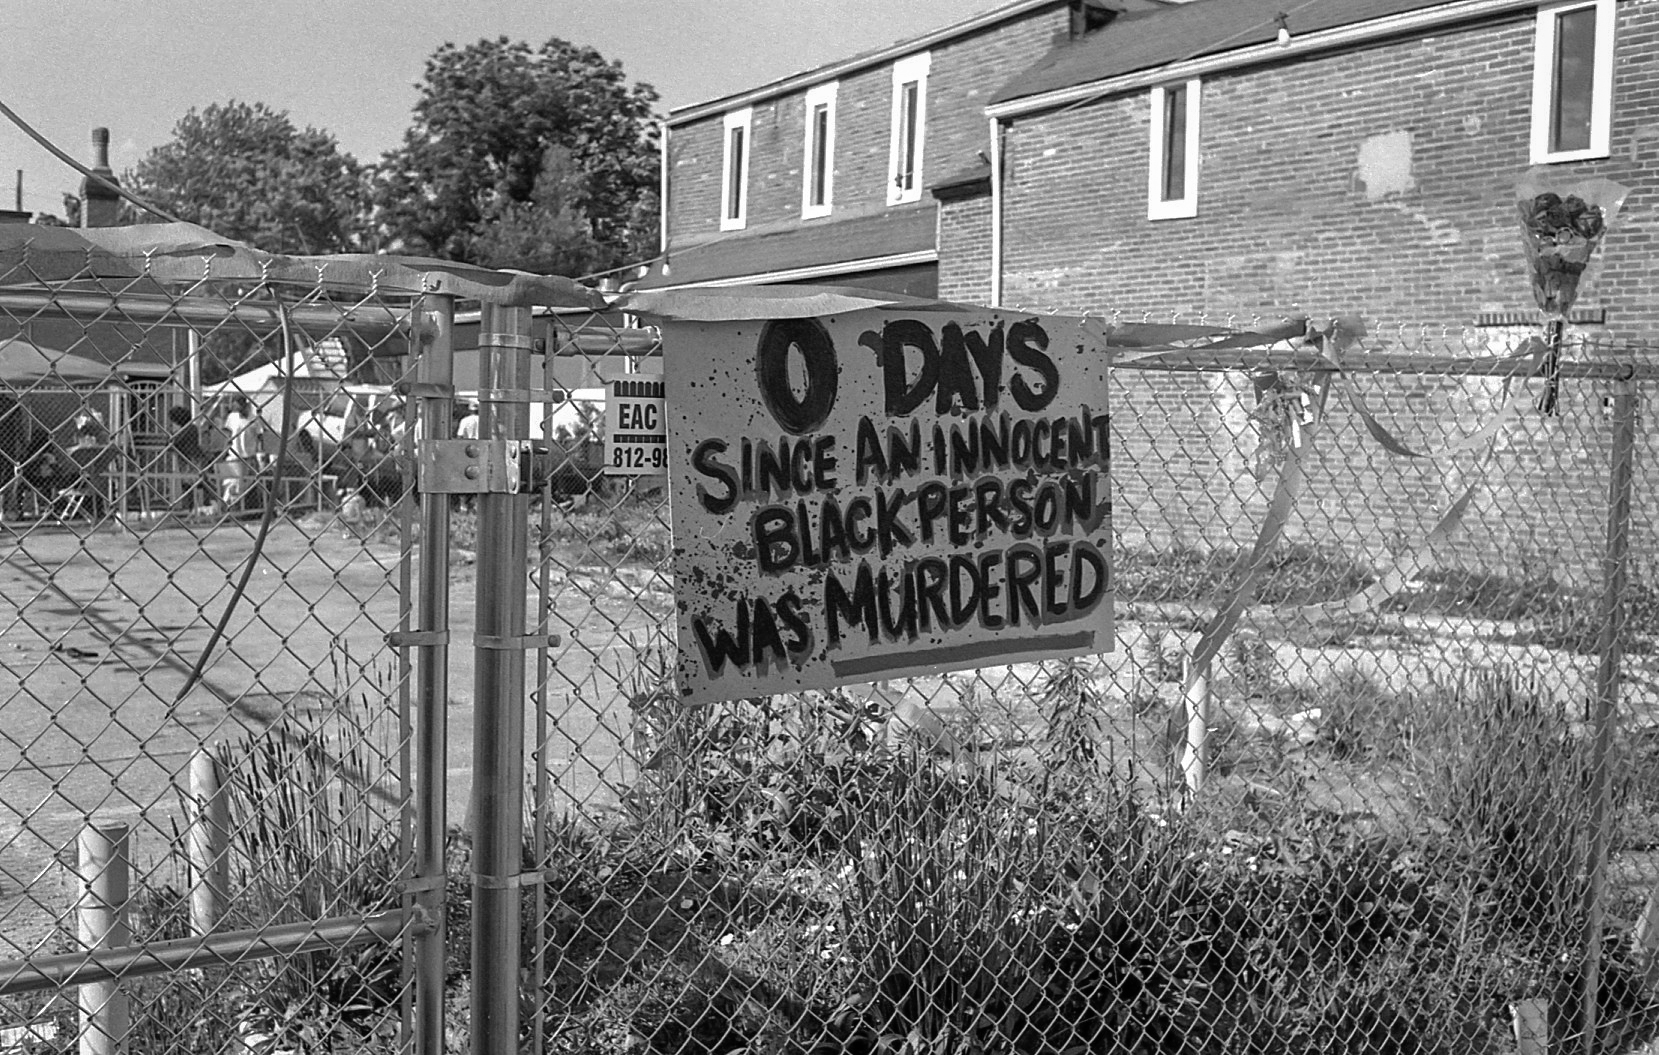 0 DAYS
SINCE AN INNOCENT
BLACK PERSON
WAS MURDERED
EAC
812-98